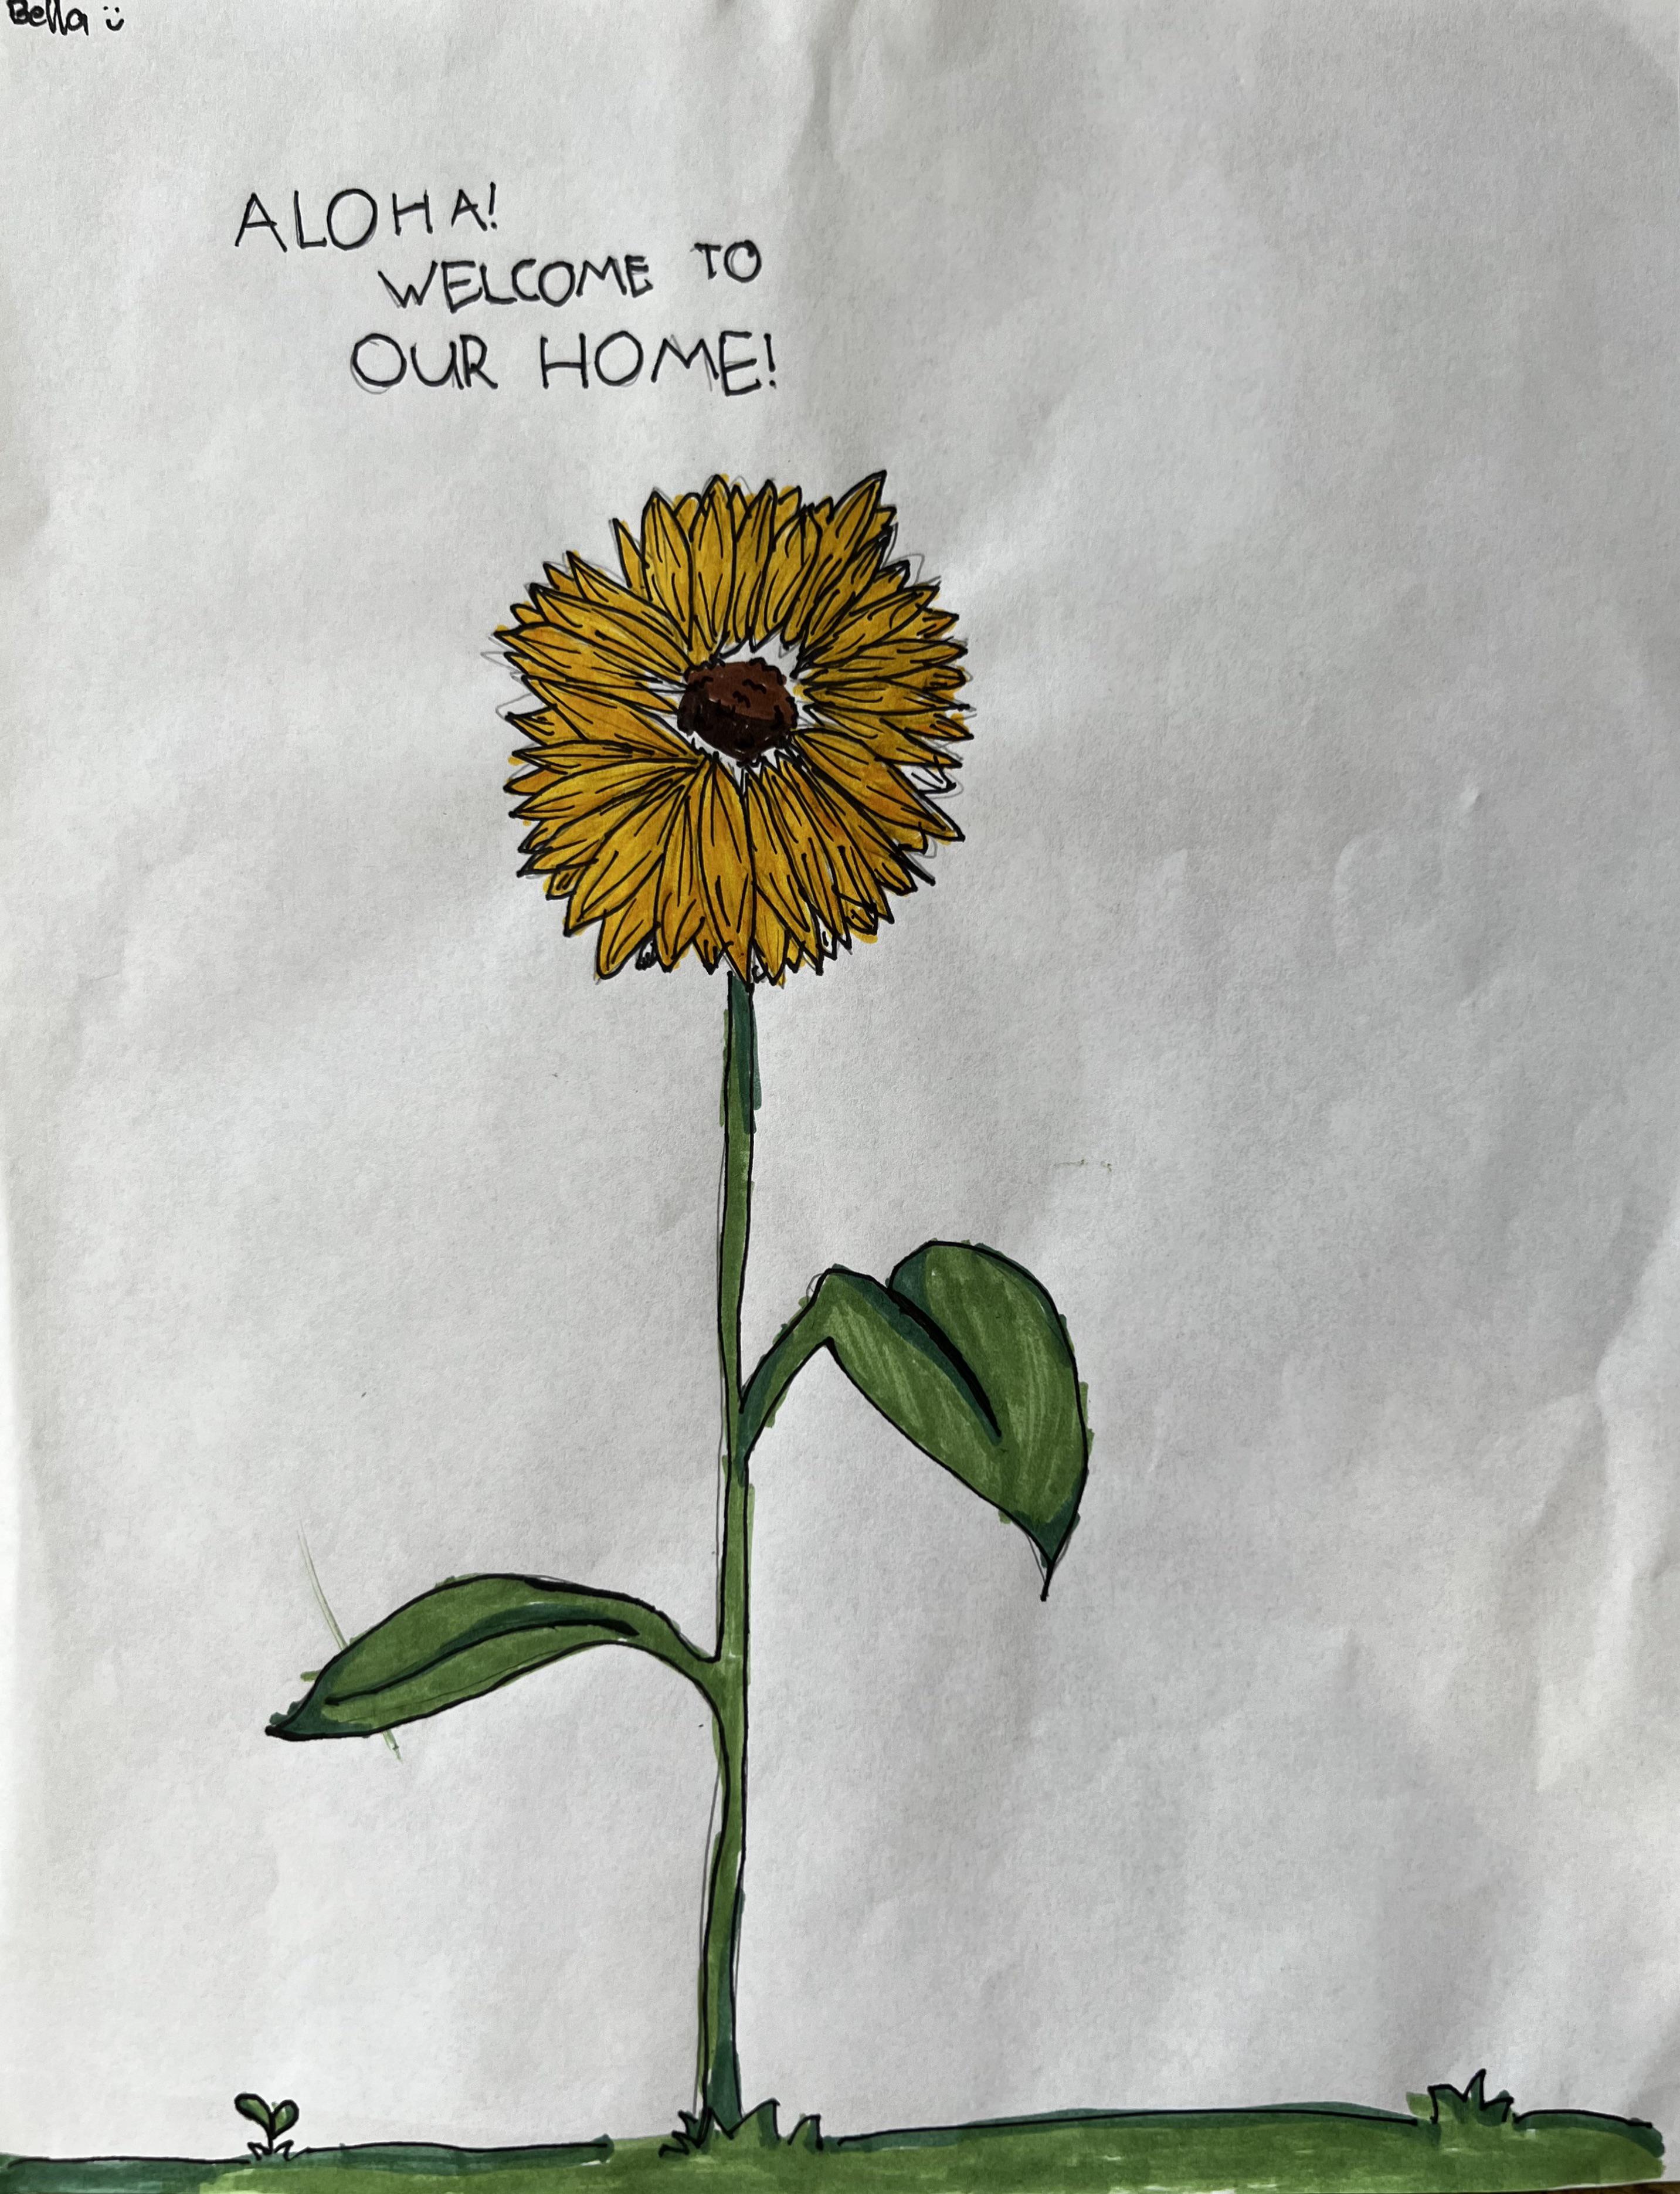 Bella :)
ALOHA!
WELCOME TO
OUR HOME!